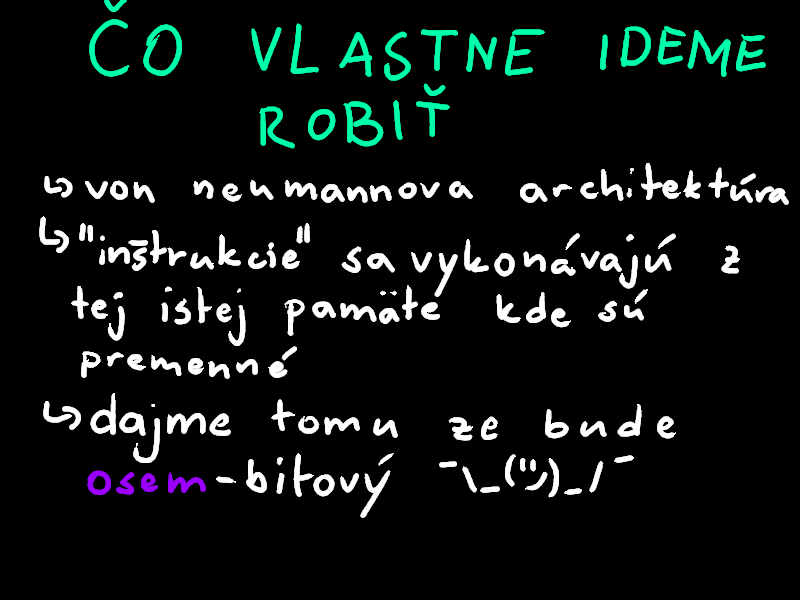 ČO VLASTNE IDEME
ROBIŤ
↳ von neumannova architektúra
↳ "inštrukcie" sa vykonávajú z
tej istej pamäte kde sú
premenné
↳ dajme tomu ze bude
osem-bitový ¯\_(ツ)_/¯